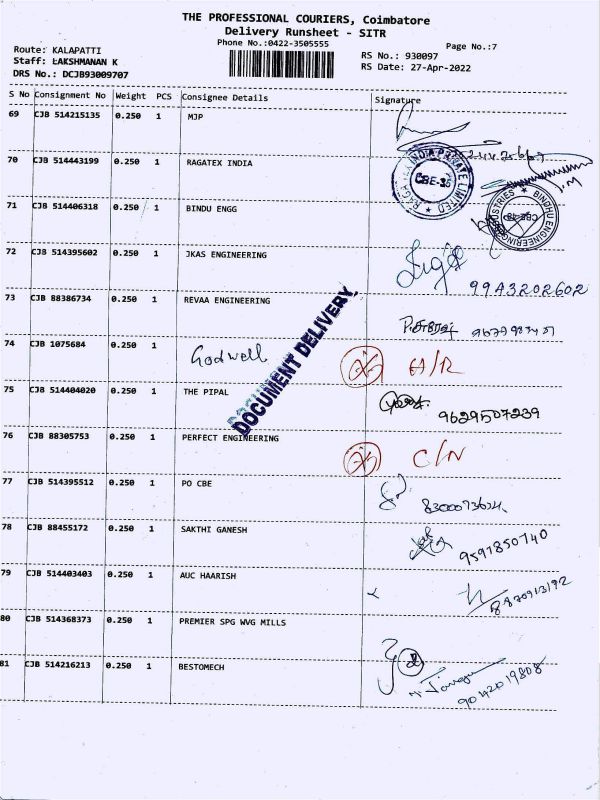 THE PROFESSIONAL COURIERS, Coimbatore
Delivery Runsheet - SITR
Phone No.:0422-3505555
Page No.:7
Route: KALAPATTI
RS No.: 930097
Staff: LAKSHMANAN K
RS Date: 27-Apr-2022
DRS No.: DCJB93009707
S No Consignment No Weight PCS Consignee Details Signature
69 CJB 514215135 0.250 1 MJP
70 CJB 514443199 0.250 1 RAGATEX INDIA
RAGATEX INDIA PRIVATE LIMITED CBE-35
71 CJB 514406318 0.250 1 BINDU ENGG
BINDHU ENGINEERING INDUSTRIES
72 CJB 514395602 0.250 1 JKAS ENGINEERING
9943202602
73 CJB 88386734 0.250 1 REVAA ENGINEERING
74 CJB 1075684 0.250 1 Godwell
DOCUMENT DELIVERY
75 CJB 514404020 0.250 1 THE PIPAL 9629507239
76 CJB 88305753 0.250 1 PERFECT ENGINEERING C/N
77 CJB 514395512 0.250 1 PO CBE
78 CJB 88455172 0.250 1 SAKTHI GANESH 9597850740
79 CJB 514403403 0.250 1 AUC HAARISH
80 CJB 514368373 0.250 1 PREMIER SPG WVG MILLS
81 CJB 514216213 0.250 1 BESTOMECH
9042019808